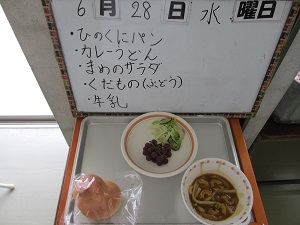 6月28日 水 曜日
・ひのくにパン
・カレーうどん
・まめのサラダ
・くだもの(ぶどう)
・牛乳